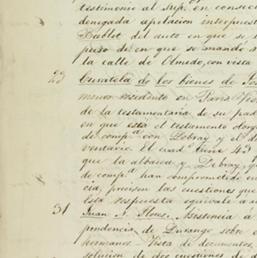 testimonio al Sup.r en consec
denegada apelacion interpuest
Doblet del auto en que se
pero de en que se mandó
la calle de Olmedo, con vista
23 Curatela de los bienes de Jos
menor residente en Paris
de la testamentaria de su pad
en que está el testamento otorg
de comp.a con Debray y el
ventario. El cuad.o tiene 43
que la albacea y Debray
de comp.a han comprometido en
cia, precisen las cuestiones que
Esta respuesta equivale a un
31 Juan N. Flores. Asistencia a
pendencia de Durango sobre
hermanos. Vista de documentos
solucion de dos cuestiones de